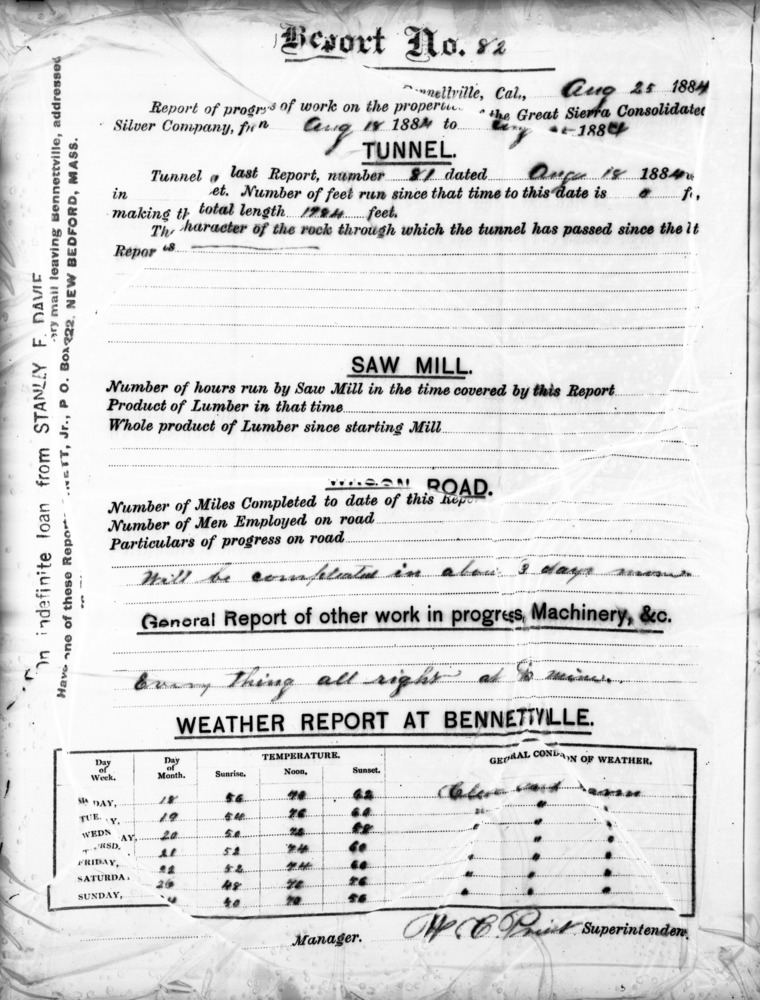 Report No. 82
Bennettville, Cal., Aug 25 1884
Report of progrs of work on the properti the Great Sierra Consolidated
Silver Company, from Aug 18 1884 to Aug 1884
TUNNEL.
Tunnel last Report, number 81 dated Augu 18 1884
in et. Number of feet run since that time to this date is 0 f,
making th total length 1784 feet.
Th haracter of the rock through which the tunnel has passed since the lt
Repor is
SAW MILL.
Number of hours run by Saw Mill in the time covered by this Report
Product of Lumber in that time
Whole product of Lumber since starting Mill
WAGON ROAD.
Number of Miles Completed to date of this Repo
Number of Men Employed on road
Particulars of progress on road
Will be compleated in abou 3 days more
General Report of other work in progress, Machinery, &c.
Every thing all right at mine.
WEATHER REPORT AT BENNETTVILLE.
Day of Week. Day of Month. TEMPERATURE. GENERAL CONDION OF WEATHER.
Sunrise. Noon. Sunset.
M DAY, 18 56 70 62 Clear and warm
TUE Y, 19 54 76 60 " " "
WEDN AY, 20 50 72 58 " " "
RSD, 21 52 74 60 " " "
FRIDAY, 22 52 74 60 " " "
SATURDA 48 72 56 " " "
SUNDAY, 50 70 56 " " "
Manager. Superintenden
On indefinite loan from STANLEY F. DAVIE
Have one of these Repor ery mail leaving Bennettville, addressed
NETT, Jr., P O. Box 222. NEW BEDFORD, MASS.